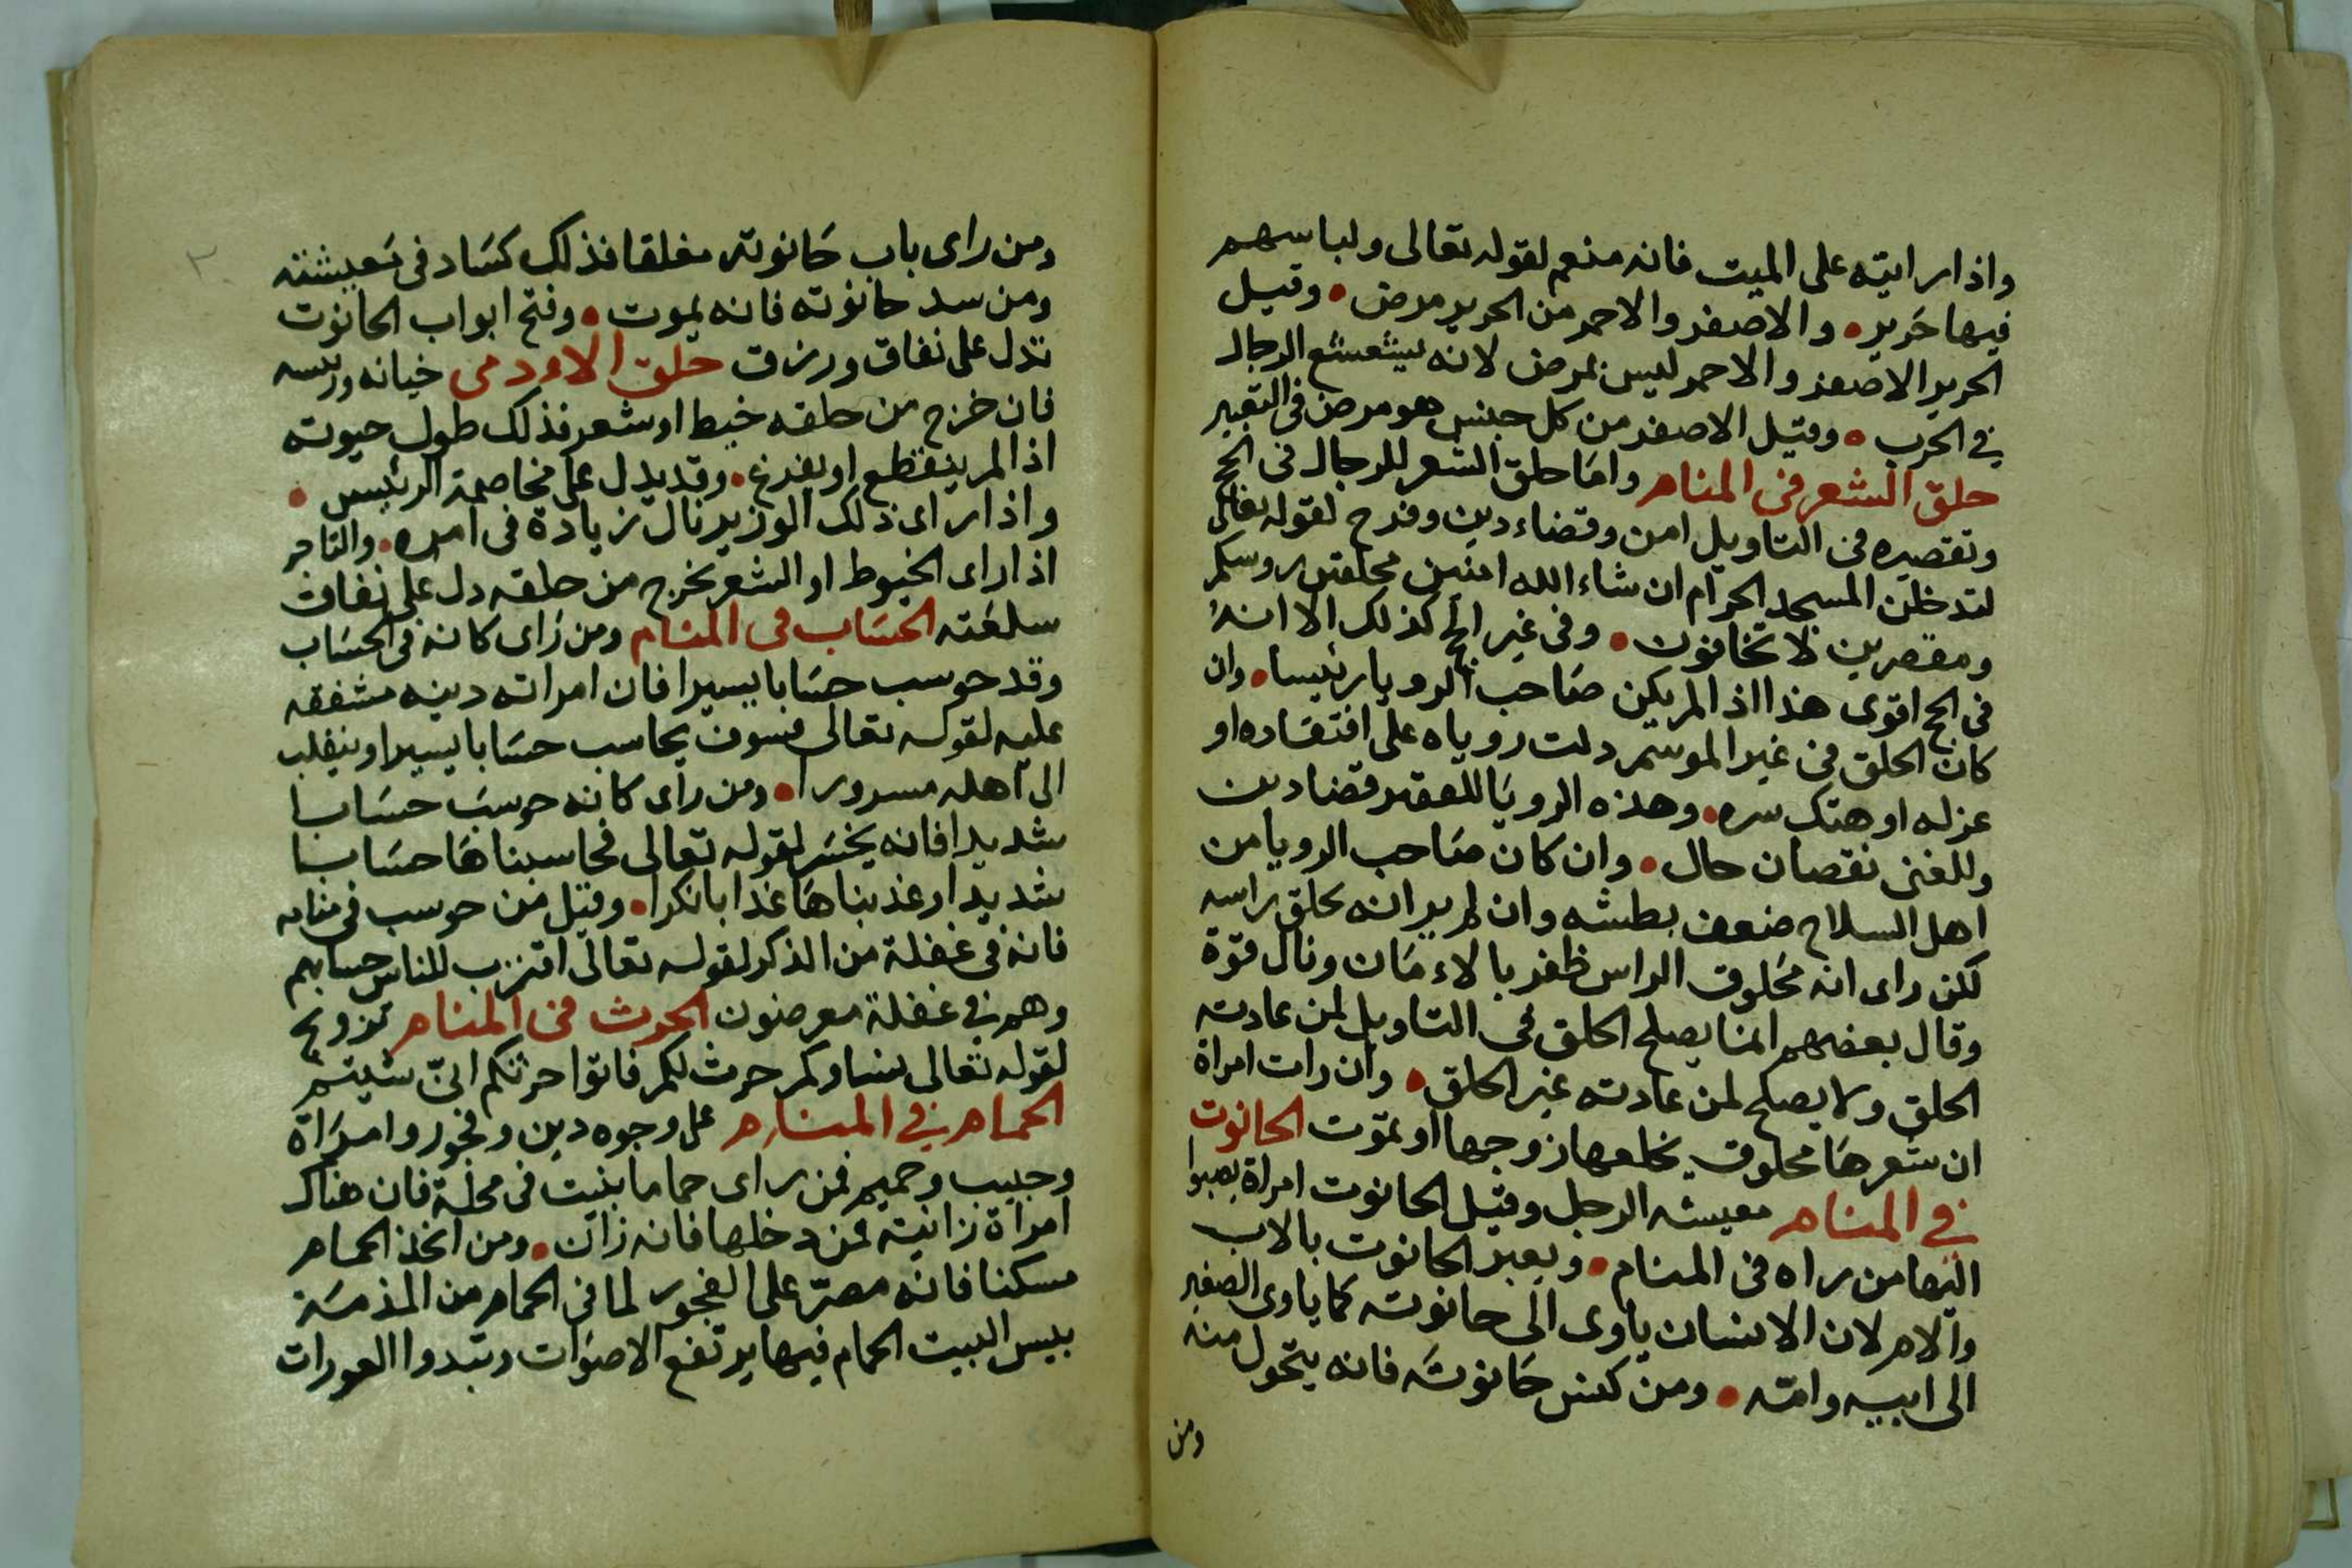 واذا رايته على الميت فانه منعم لقوله تعالى ولباسهم
فيها حرير • والاصفر والاحمر من الحرير مرض • وقيل
الحرير الاصفر والاحمر ليس بمرض لانه الرجال
في الحرب • وقيل الاصفر من كل جنس هو مرض فى التعبير
حلق الشعر فى المنام واما حلق الشعر للرجال فى الحج
وتقصيره فى التاويل امن وقضاء دين وفرح لقوله تعالى
لتدخلن المسجد الحرام ان شاء الله امنين محلقين روسكم
ومقصرين لا تخافون • وفى غير الحج كذلك الا انه
فى الحج اقوى هذا اذا لم يكن صاحب الرويا رئيسا • وان
كان الحلق فى غير الموسم دلت روياه على افتقاره او
عزله او هتك سره • وهذه الرويا للفقير قضا دين
وللغنى نقصان حال • وان كان صاحب الرويا من
اهل السلاح ضعف بطشه وان لم ير انه يحلق راسه
لكن راى انه محلوق الراس ظفر بالاءمان ونال قوة
وقال بعضهم انما يصلح الحلق فى التاويل لمن عادته
الحلق ولا يصلح لمن عادته غير الحلق • وان رات امراة
ان شعرها محلوق يخلعها زوجها او تموت الحانوت
في المنام معيشه الرجل وقيل الحانوت امراة يصبوا
اليها من راه فى المنام • ويعبر الحانوت بالاب
والام لان الانسان ياوى الى حانوته كما ياوى الصغير
الى ابيه وامه • ومن كنس حانوته فانه يتحول منه
ومن
ومن راى باب حانوته مغلقا فذلك كساد فى معيشته
ومن سد حانوته فانه يموت • وفتح ابواب الحانوت
تدل على نفاق ورزق حلق الاودمى خيانه ورئيسه
فان خرج من حلقه خيط او شعر فذلك طول حيوته
اذا لم ينقطع او يفرغ • وقد يدل على مخاصمة الرئيس •
واذا راى ذلك الوزير نال زيادة فى امره • والتاجر
اذا راى الخيوط او الشعر تخرج من حلقه دل على نفاق
سلعته الحساب فى المنام ومن راى كانه فى الحساب
وقد حوسب حسابا يسيرا فان امراته دينه مشفقه
عليه لقوله تعالى فسوف يحاسب حسابا يسيرا وينقلب
الى اهله مسرورا • ومن راى كانه حوسب حسابا
شديدا فانه يخسر لقوله تعالى فحاسبناها حسابا
شديدا وعذبناها عذابا نكرا • وقيل من حوسب فى منامه
فانه فى غفلة من الذكر لقوله تعالى اقترب للناس حسابهم
وهم في غفلة معرضون الحرث فى المنام تزويج
لقوله تعالى نساوكم حرث لكم فاتوا حرثكم انىّ شيتم
الحمام في المنام على وجوه دين وفجور وامراة
وحبيب وحميم فمن راى حماما بنيت فى محلة فان هناك
امراة زانيته فمن دخلها فانه زان • ومن اتخذ الحمام
مسكنا فانه مصرّ على الفجور لما فى الحمام من المذمة
بيس البيت الحمام فيها يرتفع الاصوات وتبدوا العورات